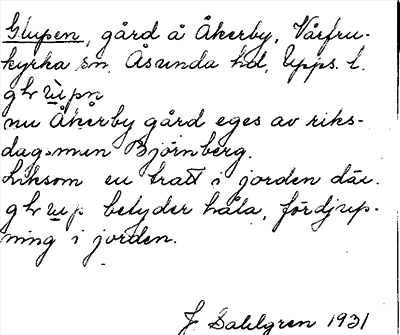 Glupen, gård å Åkerby, Vårfru-
kyrka sn. Åsunda hd, Upps. l.
nu Åkerby gård eges av riks-
dagsman Björnberg.
Liksom en tratt i jorden där.
betyder håla, fördjup-
ning i jorden.
J Sahlgren 1931